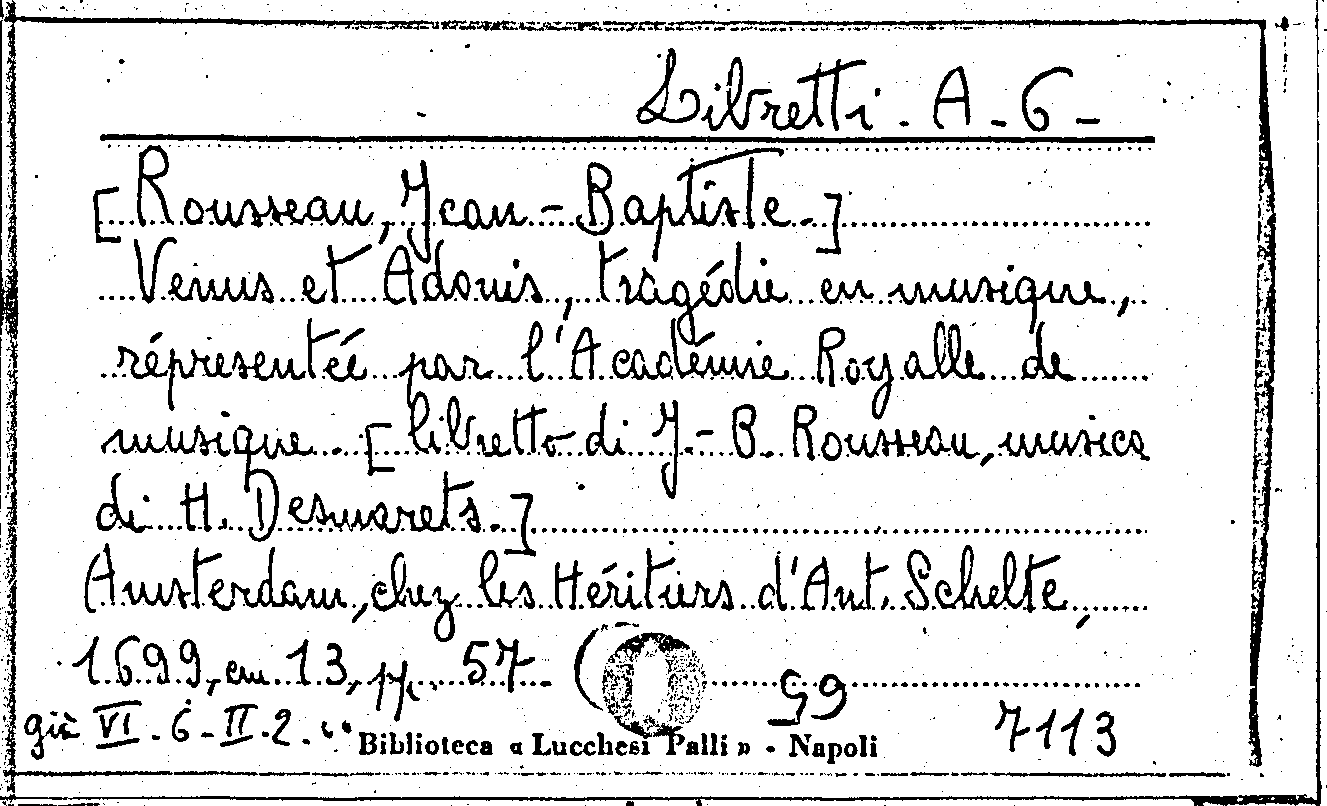 Libretti. A-6-
[Rousseau, Jean-Baptiste.]
Venus et Adonis, tragédie en musique,
réprésentéé par l'Académie Royalle de
musique. [libretto di J.-B. Rousseau, musica
di H. Desmarets.]
Amsterdam, chez les Héritiers d'Ant. Schelte,
1699, cm. 13, pp. 57. (
59
già VI.6-II.2.
Biblioteca « Lucchesi Palli » - Napoli
7113